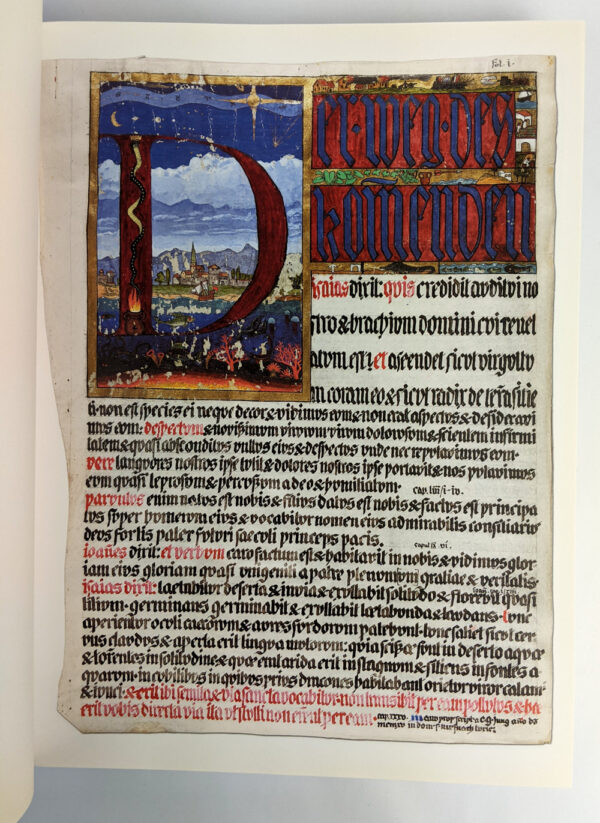 fol. i.
Der weg des
komenden
isaias dixit: quis credidit auditui no
stro & brachium domini cui revel
atum est: et ascendet sicut virgultu
m coram eo & sicut radix de terra sitie
ti. non est species ei neque decor & vidimus eum & non erat aspectus & desideravi
mus eum: despectum & novissimum virorum virum dolorosum & scientem infirmi
tatem & quasi absconditus vultus eius & despectus unde nec reputavimus eum.
vere languores nostros ipse tulit & dolores nostros ipse portavit & nos putavimus
eum quasi leprosum & percussum a deo & humiliatum. cap. liii/i-iv.
parvulus enim natus est nobis & filius datus est nobis & factus est principa
tus super humerum eius & vocabitur nomen eius admirabilis consiliarius
deus fortis pater futuri saeculi princeps pacis. caput ix. vi.
ioanes dixit: et verbum caro factum est & habitavit in nobis & vidimus glor
iam eius gloriam quasi unigeniti a patre plenum gratiae & veritatis.
isaias dixit: laetabitur deserta & invia & exultabit solitudo & florebit quasi
lilium. germinans germinabit & exultabit laetabunda & laudans. tunc
aperientur oculi caecorum & aures surdorum patebunt. tunc saliet sicut cer
vus claudus & aperta erit lingua mutorum: quia scissae sunt in deserto aquae
& torrentes in solitudine & quae erat arida erit in stagnum & sitiens in fontes a
quarum. in cubilibus in quibus prius dracones habitabant orietur viror calami
& iunci. & erit ibi semita & via sancta vocabitur. non transibit per eam pollutus & haec
erit vobis directa via ita ut stulti non errent per eam. cap. xxxv.